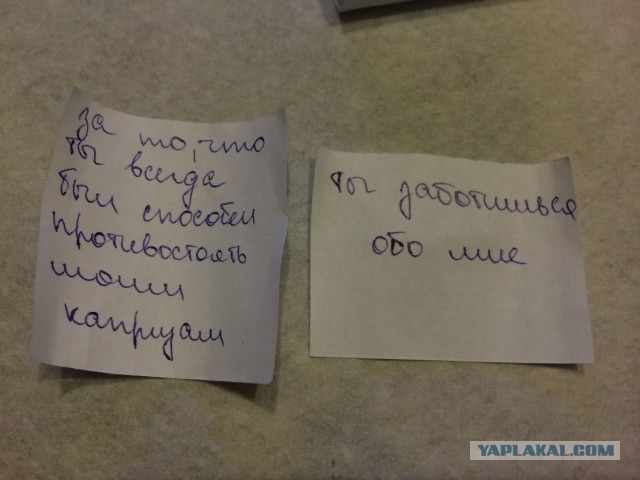 за то, что
ты всегда
был способен
противостоять
моим
капризам
ты заботишься
обо мне
YAPLAKAL.COM